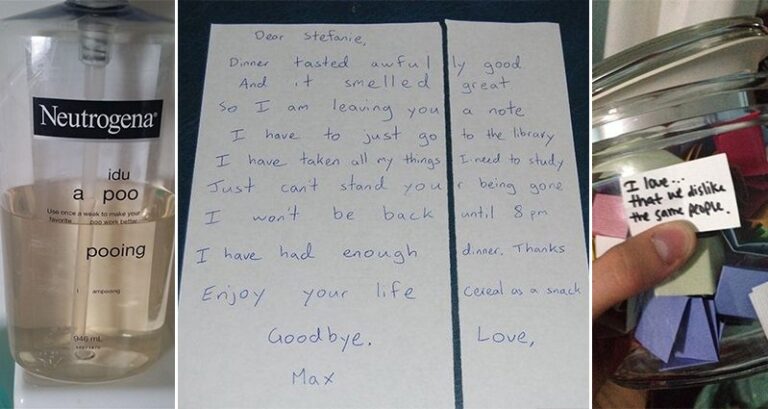 Neutrogena®
idu
a poo
Use once a week to make your
favorite poo work better.
pooing
ampooing
946 mL
Dear Stefanie,
Dinner tasted awful ly good
And it smelled great
So I am leaving you a note
I have to just go to the library
I have taken all my things I need to study
Just can't stand you r being gone
I won't be back until 8 pm
I have had enough dinner. Thanks
Enjoy your life cereal as a snack
Goodbye. Love,
Max
I love...
that we dislike
the same people.